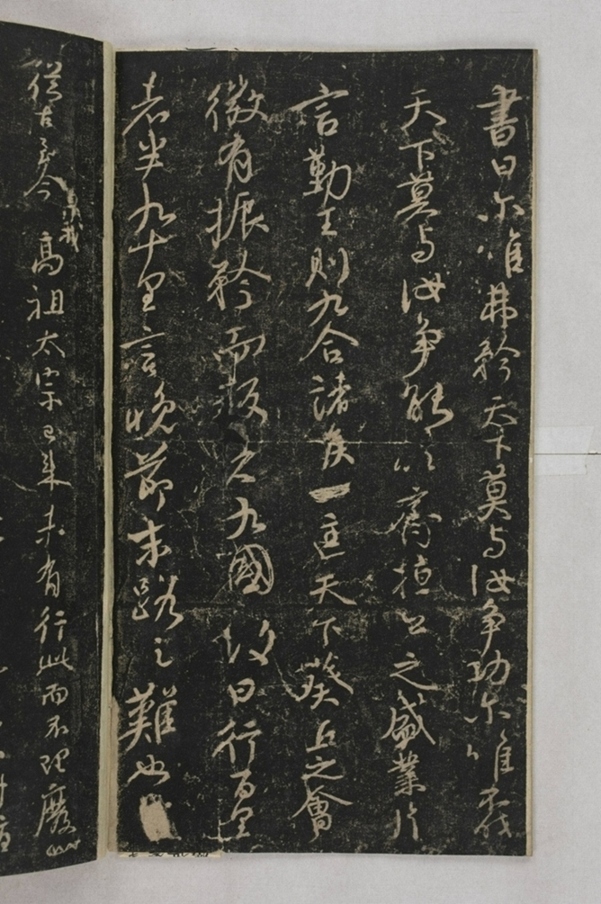 書曰尒唯弗矜天下莫与汝爭功尒唯不伐
天下莫与汝爭能以齊桓公之盛業片
言勤王則九合諸侯一匡天下葵丘之會
微有振矜而叛者九國故曰行百里
者半九十里言晚節末路之難也
從古至今暨我高祖太宗已來未有行此而不理廢此